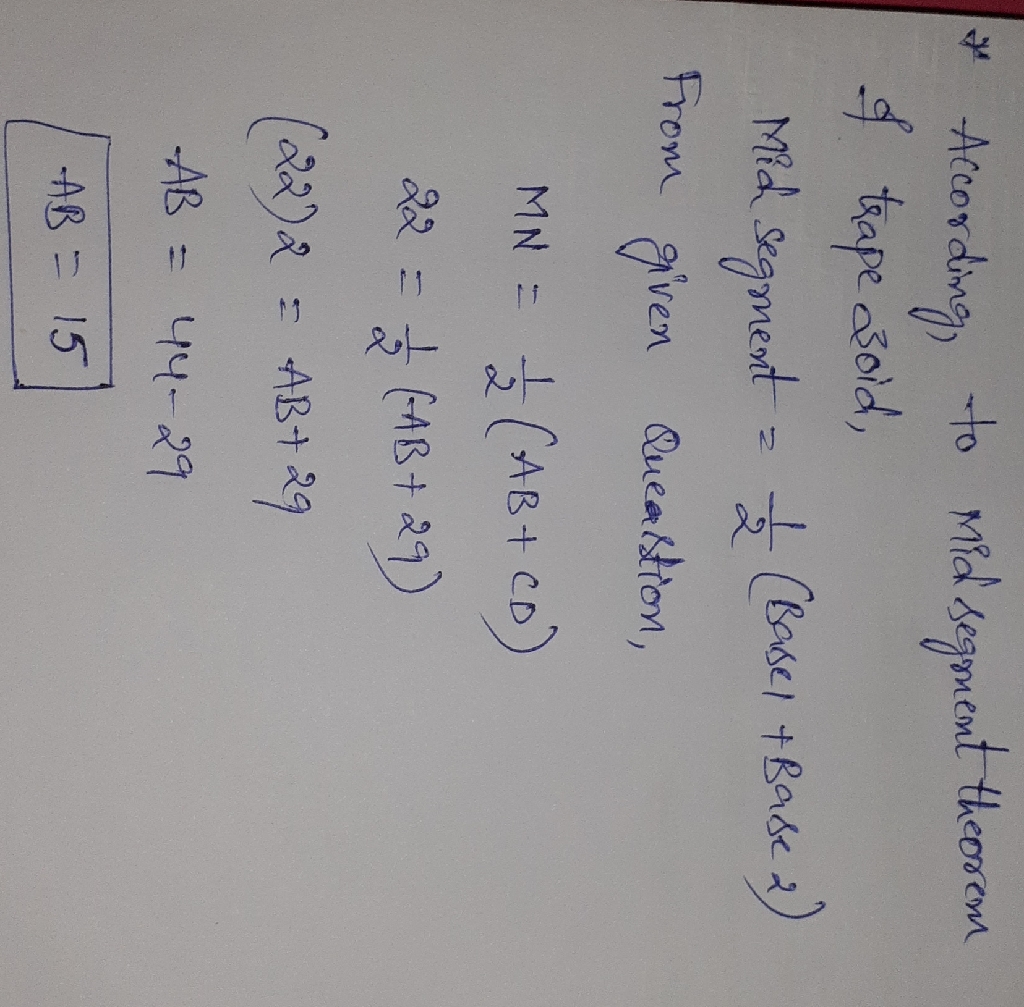 * According to Midsegment theorem
of trapezoid,
Mid segment = 1/2 (Base1 + Base 2)
From given Queastion,
MN = 1/2 (AB + CD)
22 = 1/2 (AB + 29)
(22)2 = AB + 29
AB = 44 - 29
AB = 15